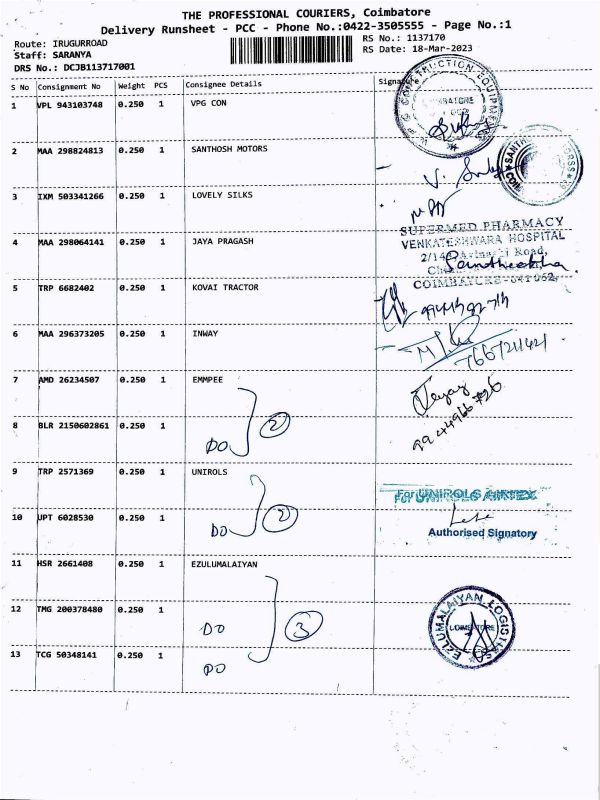 THE PROFESSIONAL COURIERS, Coimbatore
Delivery Runsheet - PCC - Phone No.:0422-3505555 - Page No.:1
Route: IRUGURROAD
Staff: SARANYA
DRS No.: DCJB113717001
RS No.: 1137170
RS Date: 18-Mar-2023
S No Consignment No Weight PCS Consignee Details Signature
1 VPL 943103748 0.250 1 VPG CON
2 MAA 298824813 0.250 1 SANTHOSH MOTORS
3 IXM 503341266 0.250 1 LOVELY SILKS
SUPERMED PHARMACY
VENKATESHWARA HOSPITAL
4 MAA 298064141 0.250 1 JAYA PRAGASH
2/14 Avinashi Road,
COIMBATORE-641 062
5 TRP 6682402 0.250 1 KOVAI TRACTOR
6 MAA 296373205 0.250 1 INWAY
7667211421
7 AMD 26234507 0.250 1 EMMPEE
9944966726
8 BLR 2150602861 0.250 1
DO 2
9 TRP 2571369 0.250 1 UNIROLS
For UNIROLS AIRTEX
10 UPT 6028530 0.250 1
DO 2
Authorised Signatory
11 HSR 2661408 0.250 1 EZULUMALAIYAN
EZLUMALAIYAN LOGISTICS
12 TMG 200378480 0.250 1
DO 3
13 TCG 50348141 0.250 1
DO